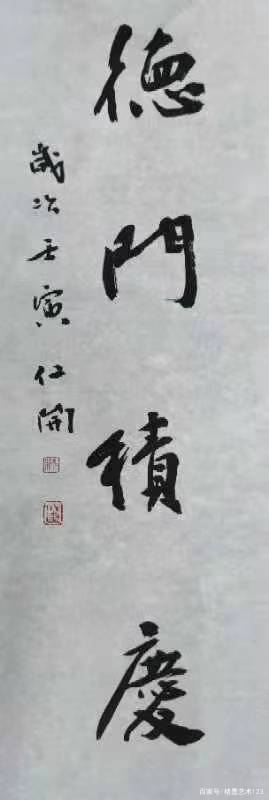 德門積慶
歲次壬寅仁開
百家号/精墨艺术123